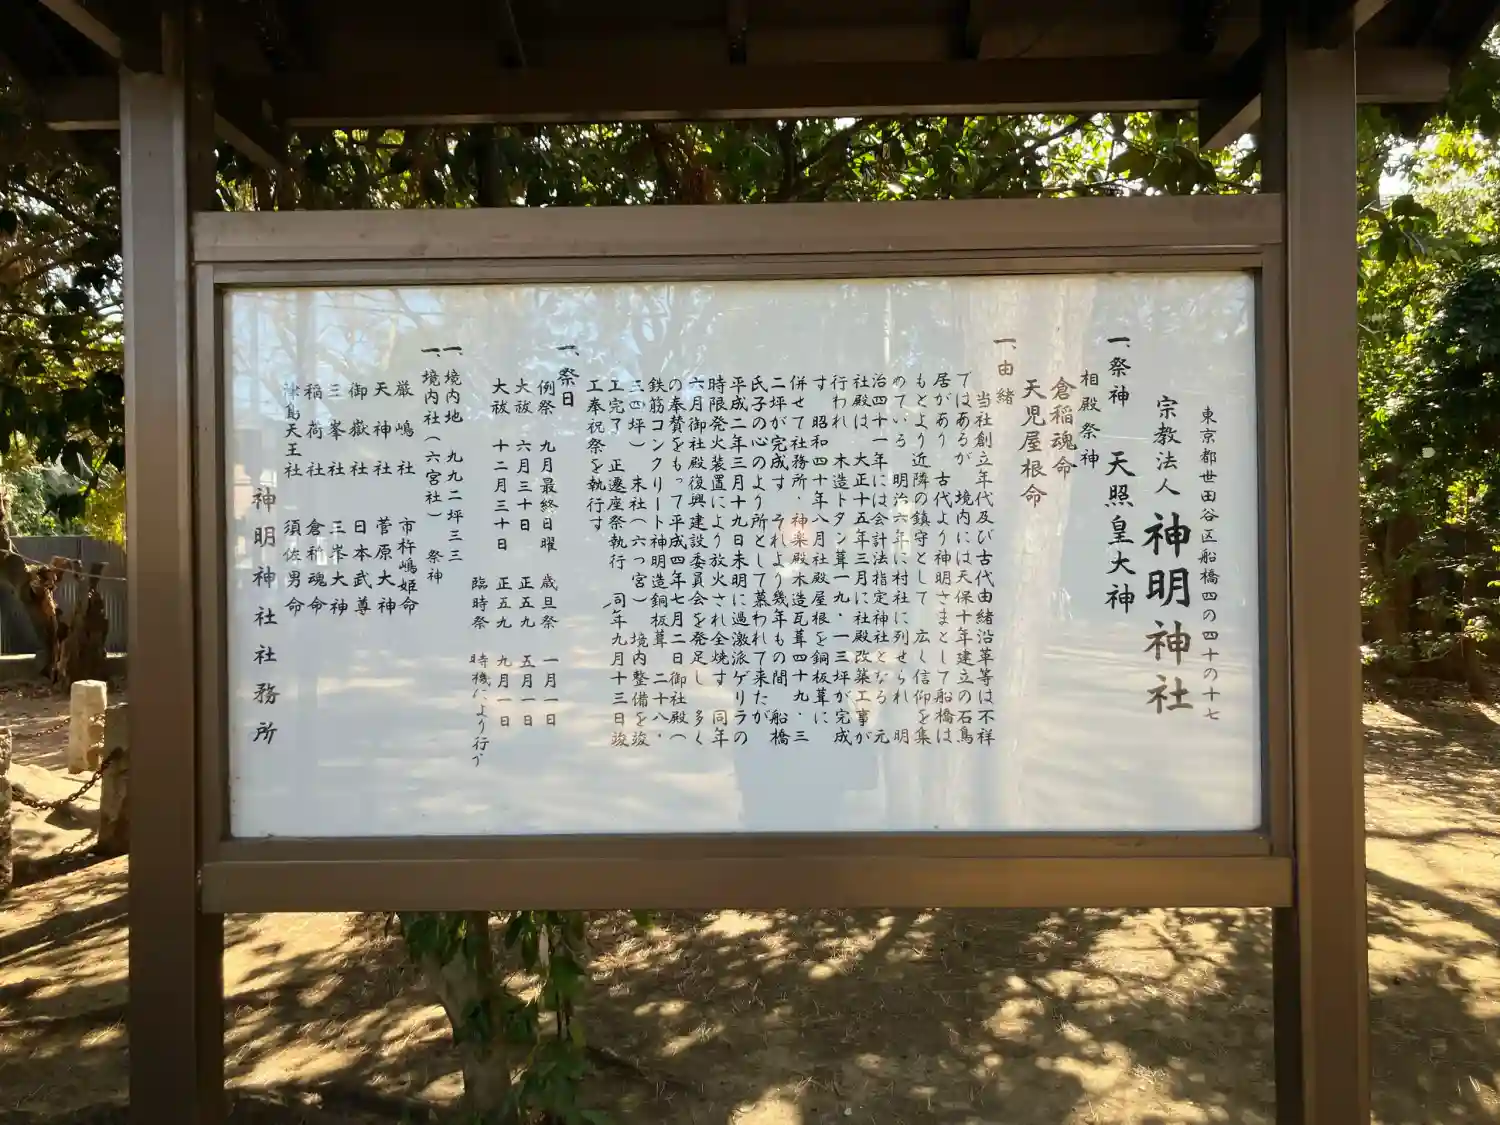 東京都世田谷区船橋四の四十の十七
宗教法人 神明神社
一、祭神 天照皇大神
相殿祭神
倉稲魂命
天児屋根命
一、由緒
当社創立年代及び古代由緒沿革等は不祥
ではあるが 境内には天保十年建立の石鳥
居があり 古代より神明さまとして船橋は
もとより近隣の鎮守として 広く信仰を集
めている 明治六年に村社に列せられ 明
治四十一年には会計法指定神社となる 元
社殿は 大正十五年三月に社殿改築工事が
行われ 木造トタン葺一九・一三坪が完成
す 昭和四十年八月社殿屋根を銅板葺に
併せて社務所・神楽殿木造瓦葺四十九・三
二坪が完成す それより幾年もの間 船橋
氏子の心のより所として慕われて来たが
平成二年三月十九日未明に過激派ゲリラの
時限発火装置により放火され全焼す 同年
六月御社殿復興建設委員会を発足し 多く
の奉賛をもって平成四年七月二日御社殿(
鉄筋コンクリート神明造銅板葺 二十八・
三四坪) 末社(六っ宮) 境内整備を竣
工完了 正遷座祭執行 同年九月十三日竣
工奉祝祭を執行す
一、祭日
例祭 九月最終日曜 歳旦祭 一月一日
大祓 六月三十日 正五九 五月一日
大祓 十二月三十日 正五九 九月一日
臨時祭 時機により行う
一、境内地 九九二坪三三
一、境内社(六宮社) 祭神
厳嶋社 市杵嶋姫命
天神社 菅原大神
御嶽社 日本武尊
三峯社 三峯大神
稲荷社 倉稲魂命
津島天王社 須佐男命
神明神社社務所